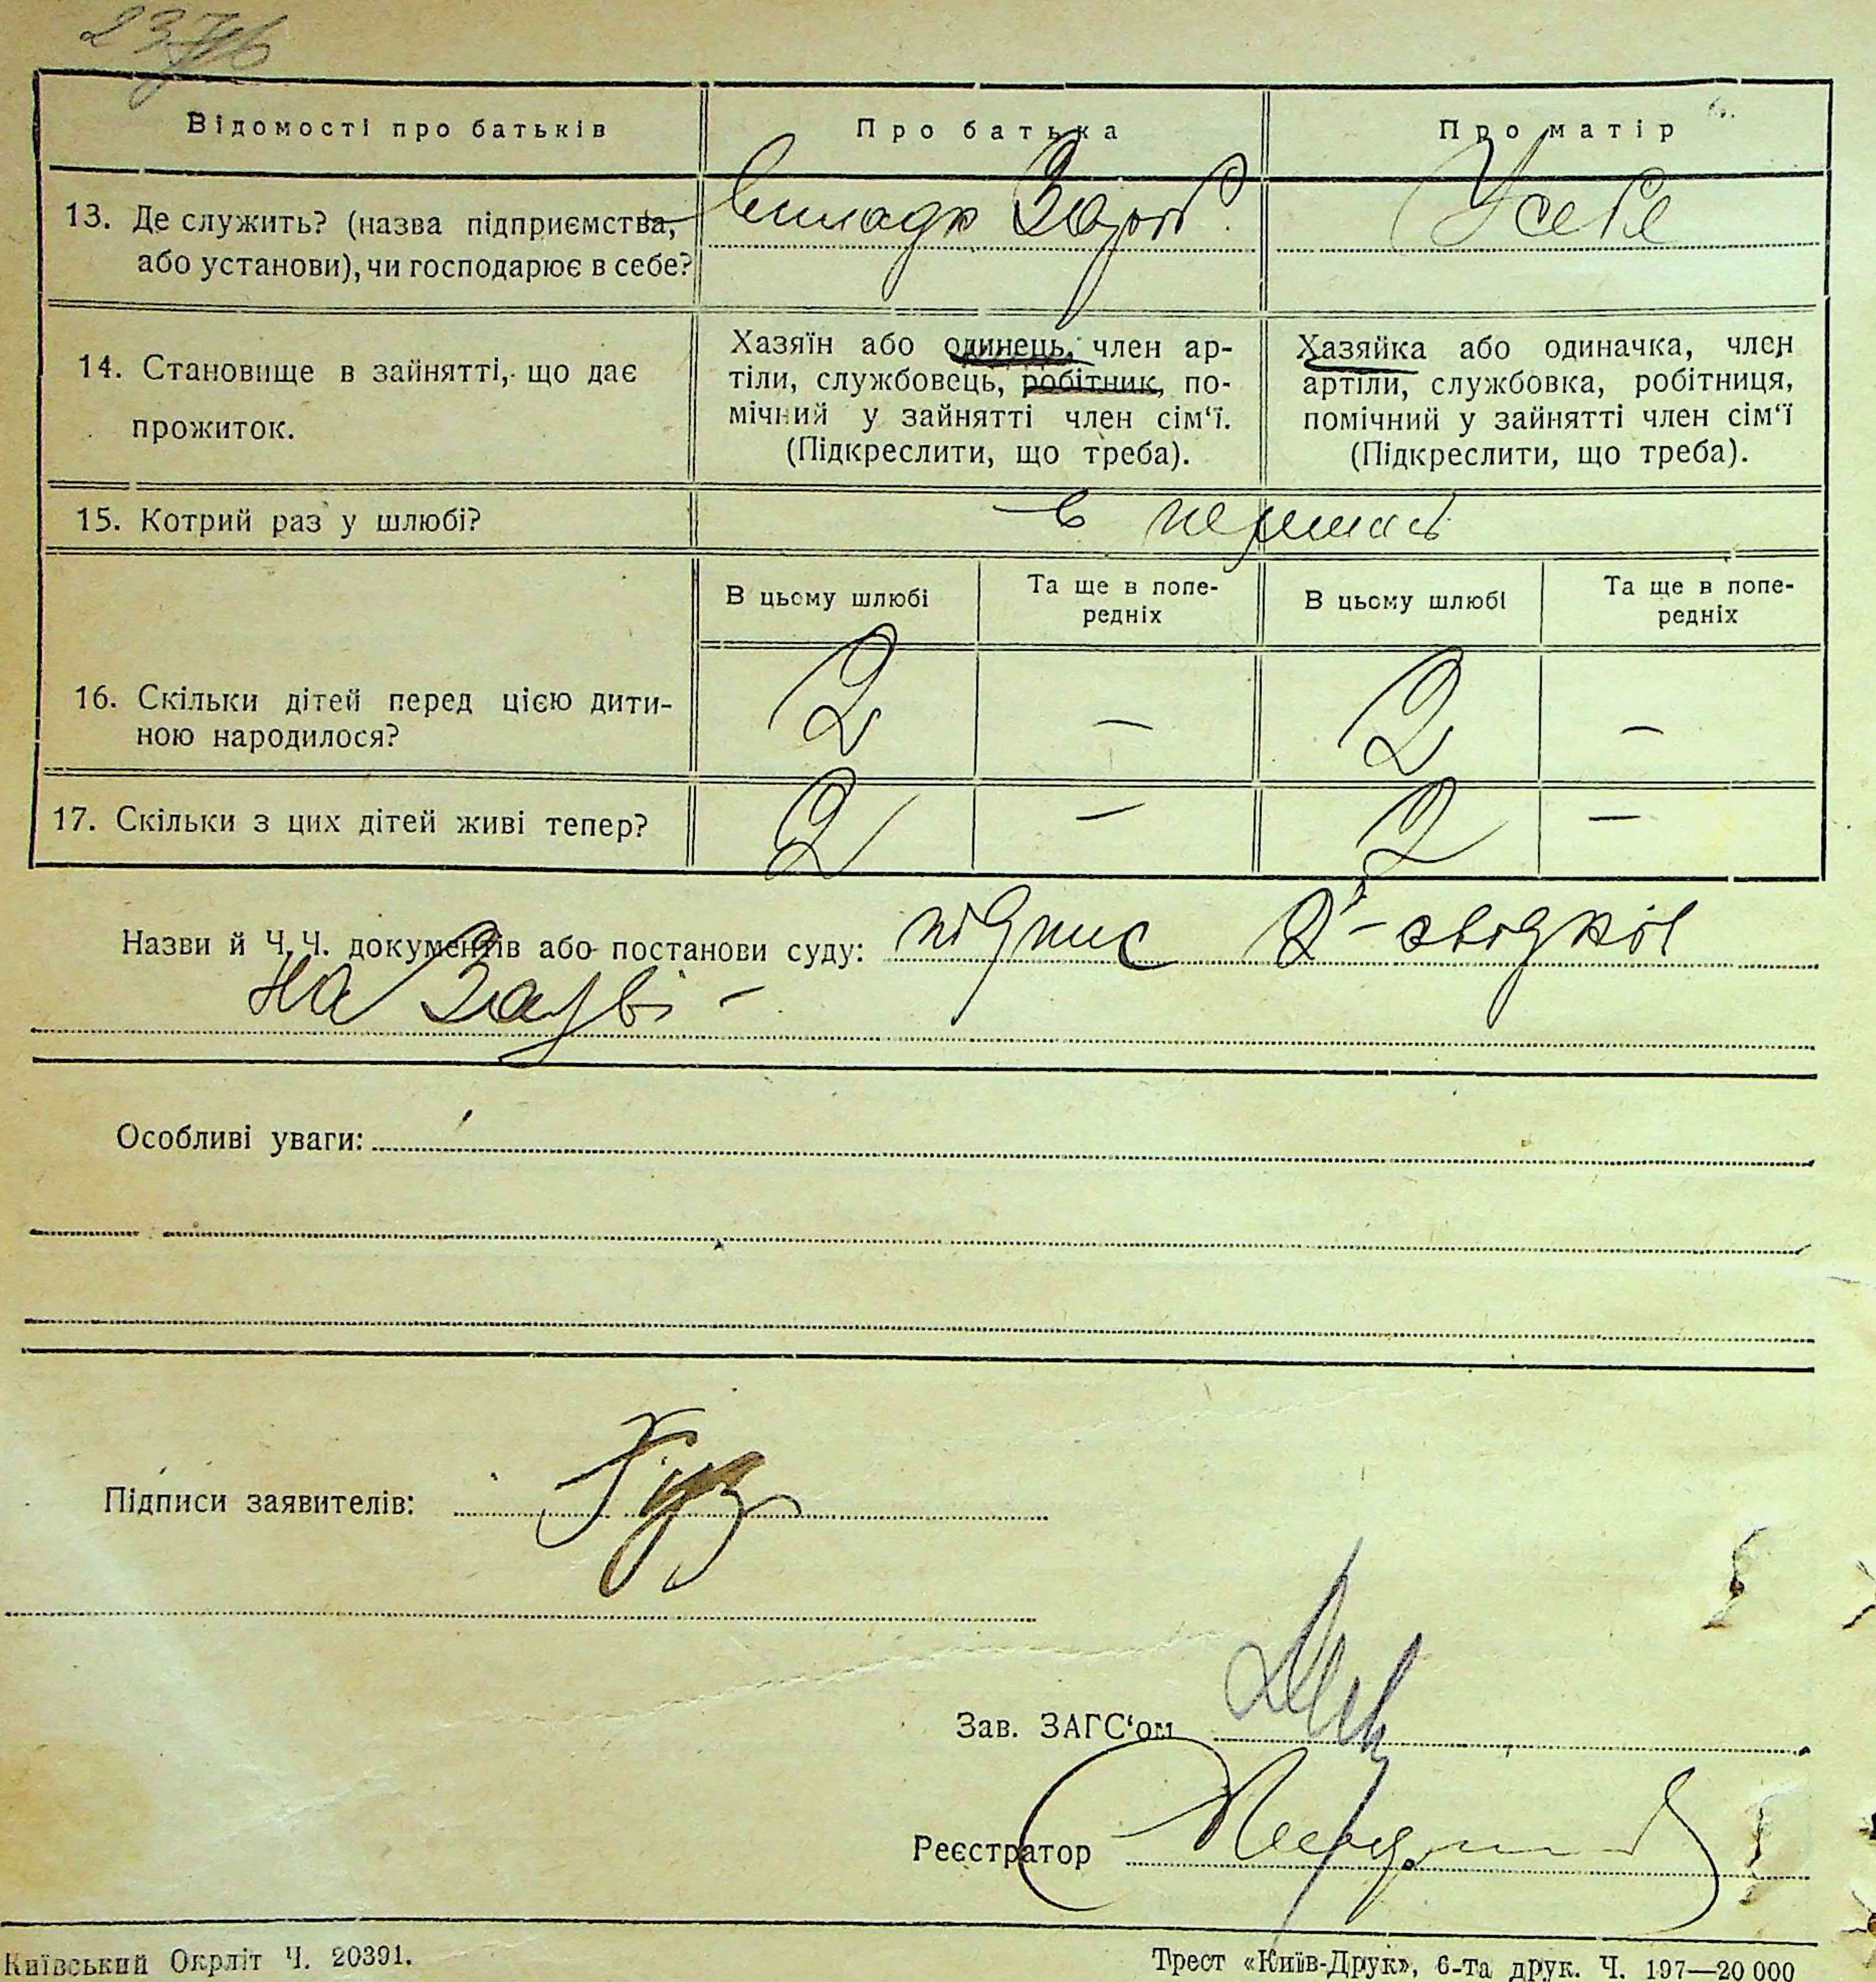 Відомості про батьків
Про батька
Про матір
13. Де служить? (назва підприємства,
або установи), чи господарює в себе?
У себе
14. Становище в зайнятті, що дає
прожиток.
Хазяїн або одинець, член ар-
тіли, службовець, робітник, по-
мічний у зайнятті член сім‘ї.
(Підкреслити, що треба).
Хазяйка або одиначка, член
артіли, службовка, робітниця,
помічний у зайнятті член сім‘ї
(Підкреслити, що треба).
15. Котрий раз у шлюбі?
в
В цьому шлюбі
Та ще в попе-
редніх
В цьому шлюбі
Та ще в попе-
редніх
16. Скільки дітей перед цією дити-
ною народилося?
2 — 2 —
17. Скільки з цих дітей живі тепер?
2 — 2 —
Назви й Ч.Ч. документів або постанови суду: підпис 2 - свідків
на заяві -
Особливі уваги:
Підписи заявителів:
Зав. ЗАГС‘ом
Реєстратор
Київський Окрліт Ч. 20391.
Трест «Київ-Друк», 6-та друк. Ч. 197—20 000